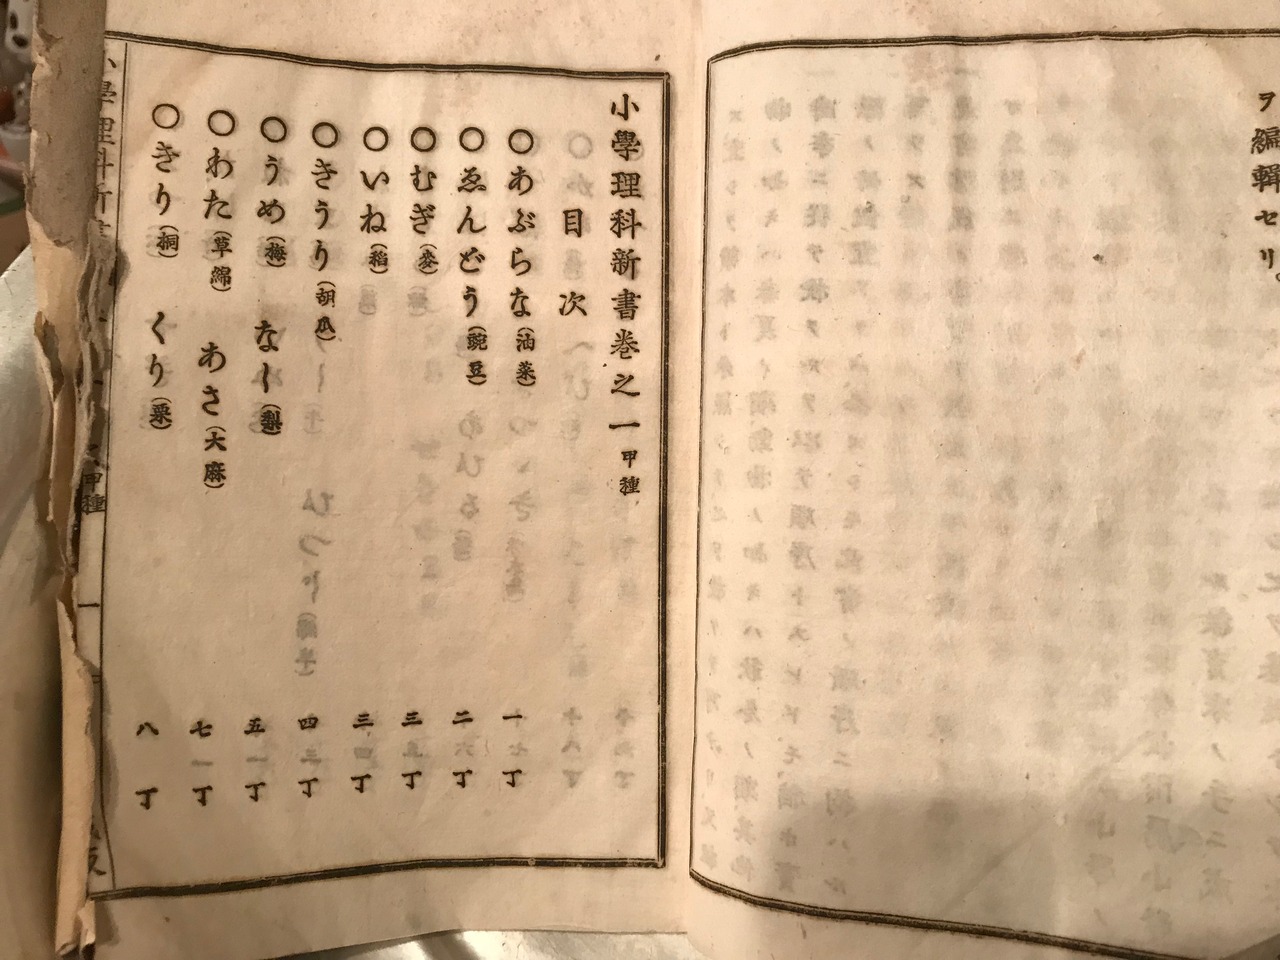 ヲ編輯セリ
小學理科新書卷之一 甲種
目次
〇あぶらな(油菜) 一丁
〇ゑんどう(豌豆) 二丁
〇むぎ(麥) 三丁
〇いね(稻) 三丁
〇きうり(胡瓜) 四丁
〇うめ(梅) なし(梨) 五丁
〇わた(草綿) あさ(大麻) 七丁
〇きり(桐) くり(栗) 八丁
小學理科新書
甲種
一